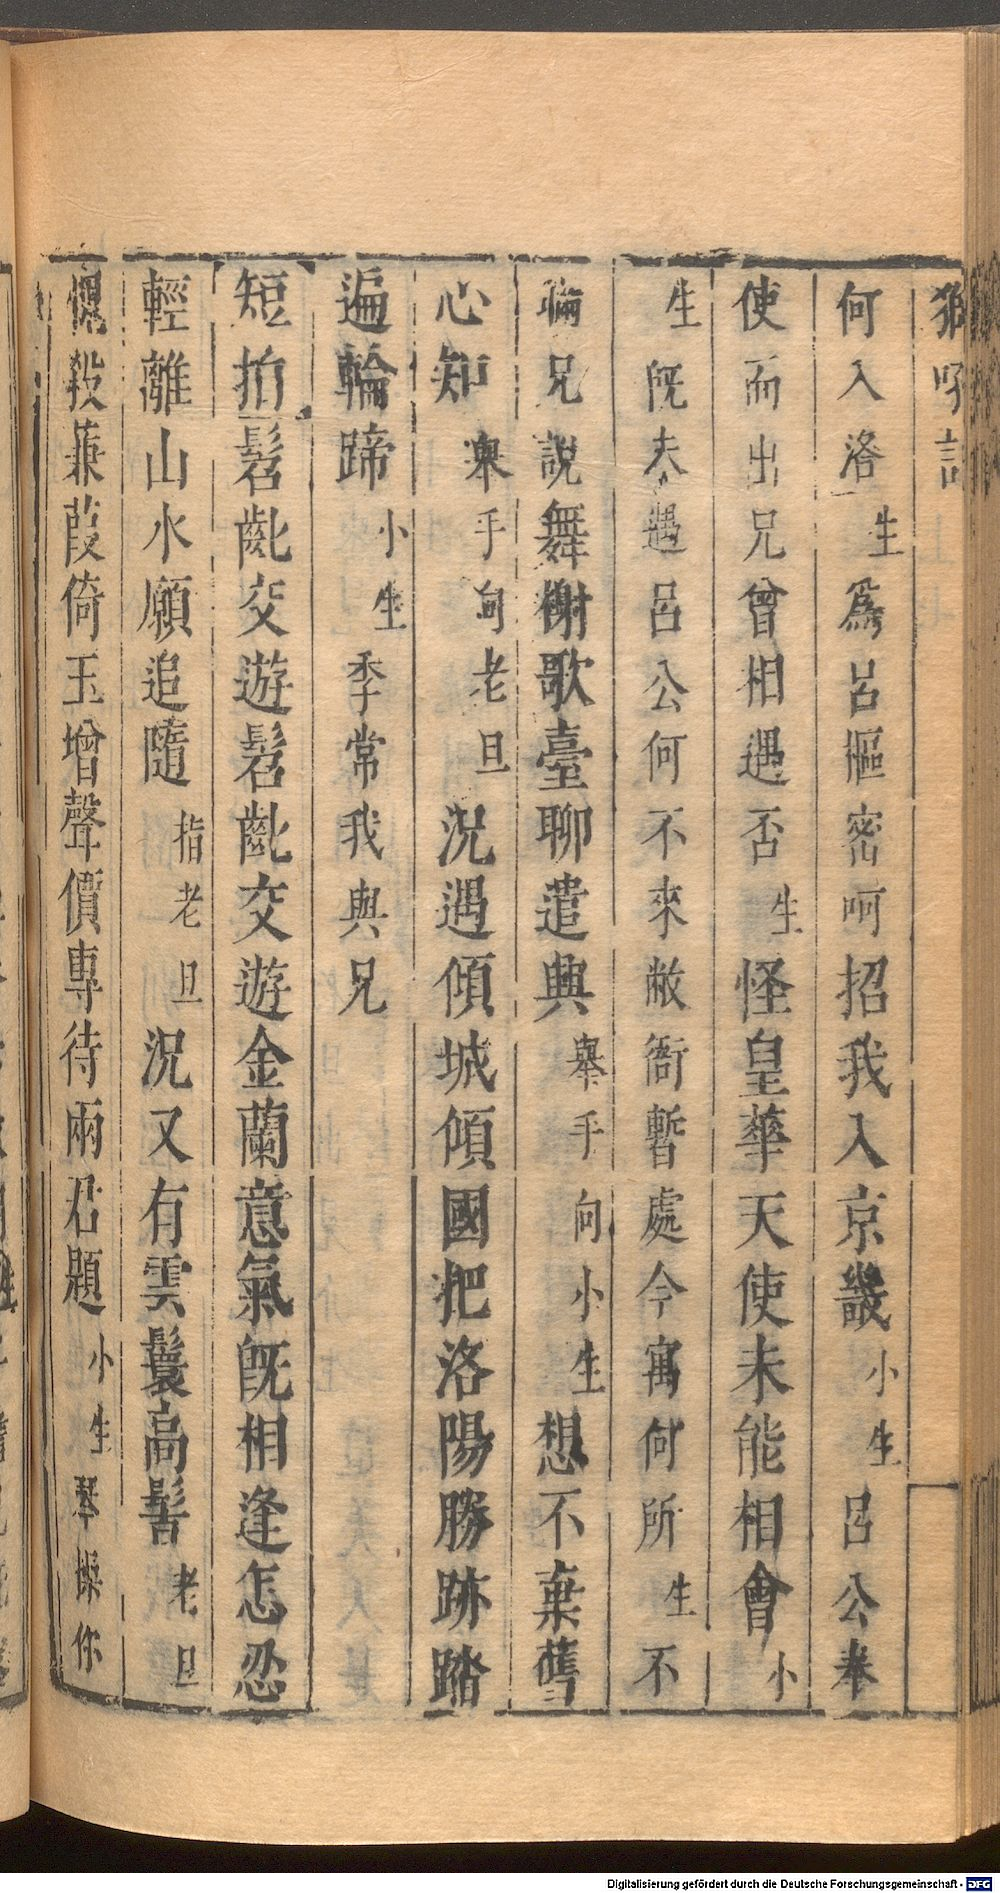 何入洛生爲呂樞密呵招我入京畿小生呂公奉
使而出兄曾相遇否生怪皇華天使未能相會小
生旣未遇呂公何不來敝衙暫處今寓何所生不
瞞兄說舞榭歌臺聊遣興舉手向小生想不棄舊
心知舉手向老旦況遇傾城傾國把洛陽勝跡踏
遍輪蹄小生季常我與兄
短拍髫齔交遊髫齔交遊金蘭意氣旣相逢怎忍
輕離山水願追隨指老旦況又有雲鬟高髻老旦
愧殺蒹葭倚玉增聲價專待兩君題小生琴操你
Digitalisierung gefördert durch die Deutsche Forschungsgemeinschaft - DFG